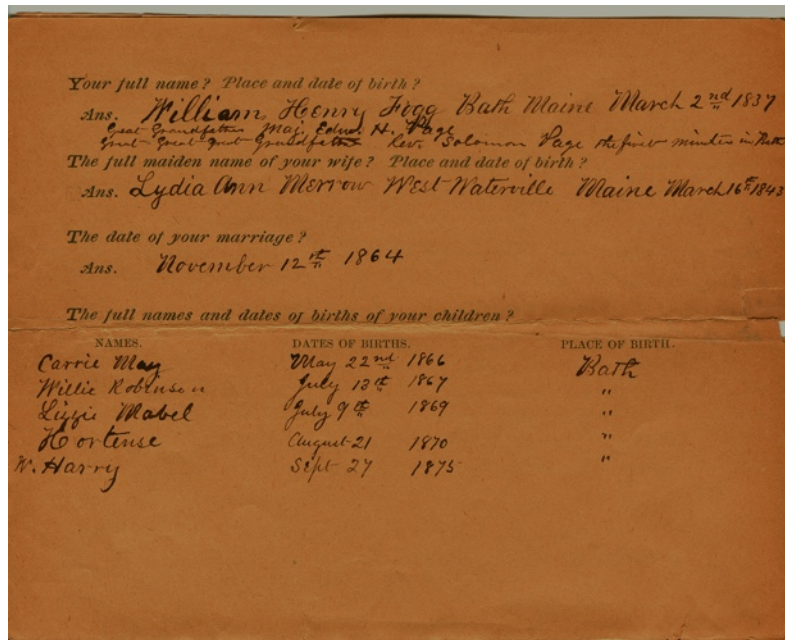 Your full name? Place and date of birth?
Ans. William Henry Fogg Bath Maine March 2nd 1837
Great Grandfather Maj. Edw. H. Page
Great-Great-Great-Grandfather Rev. Solomon Page the first minister in Bath
The full maiden name of your wife? Place and date of birth?
Ans. Lydia Ann Merrow West Waterville Maine March 16th 1843
The date of your marriage?
Ans. November 12th 1864
The full names and dates of births of your children?
NAMES. DATES OF BIRTHS. PLACE OF BIRTH.
Carrie May May 22nd 1866 Bath
Willie Robinson July 13th 1867 "
Lizzie Mabel July 9th 1869 "
Hortense August 21 1870 "
W. Harry Sept 27 1875 "